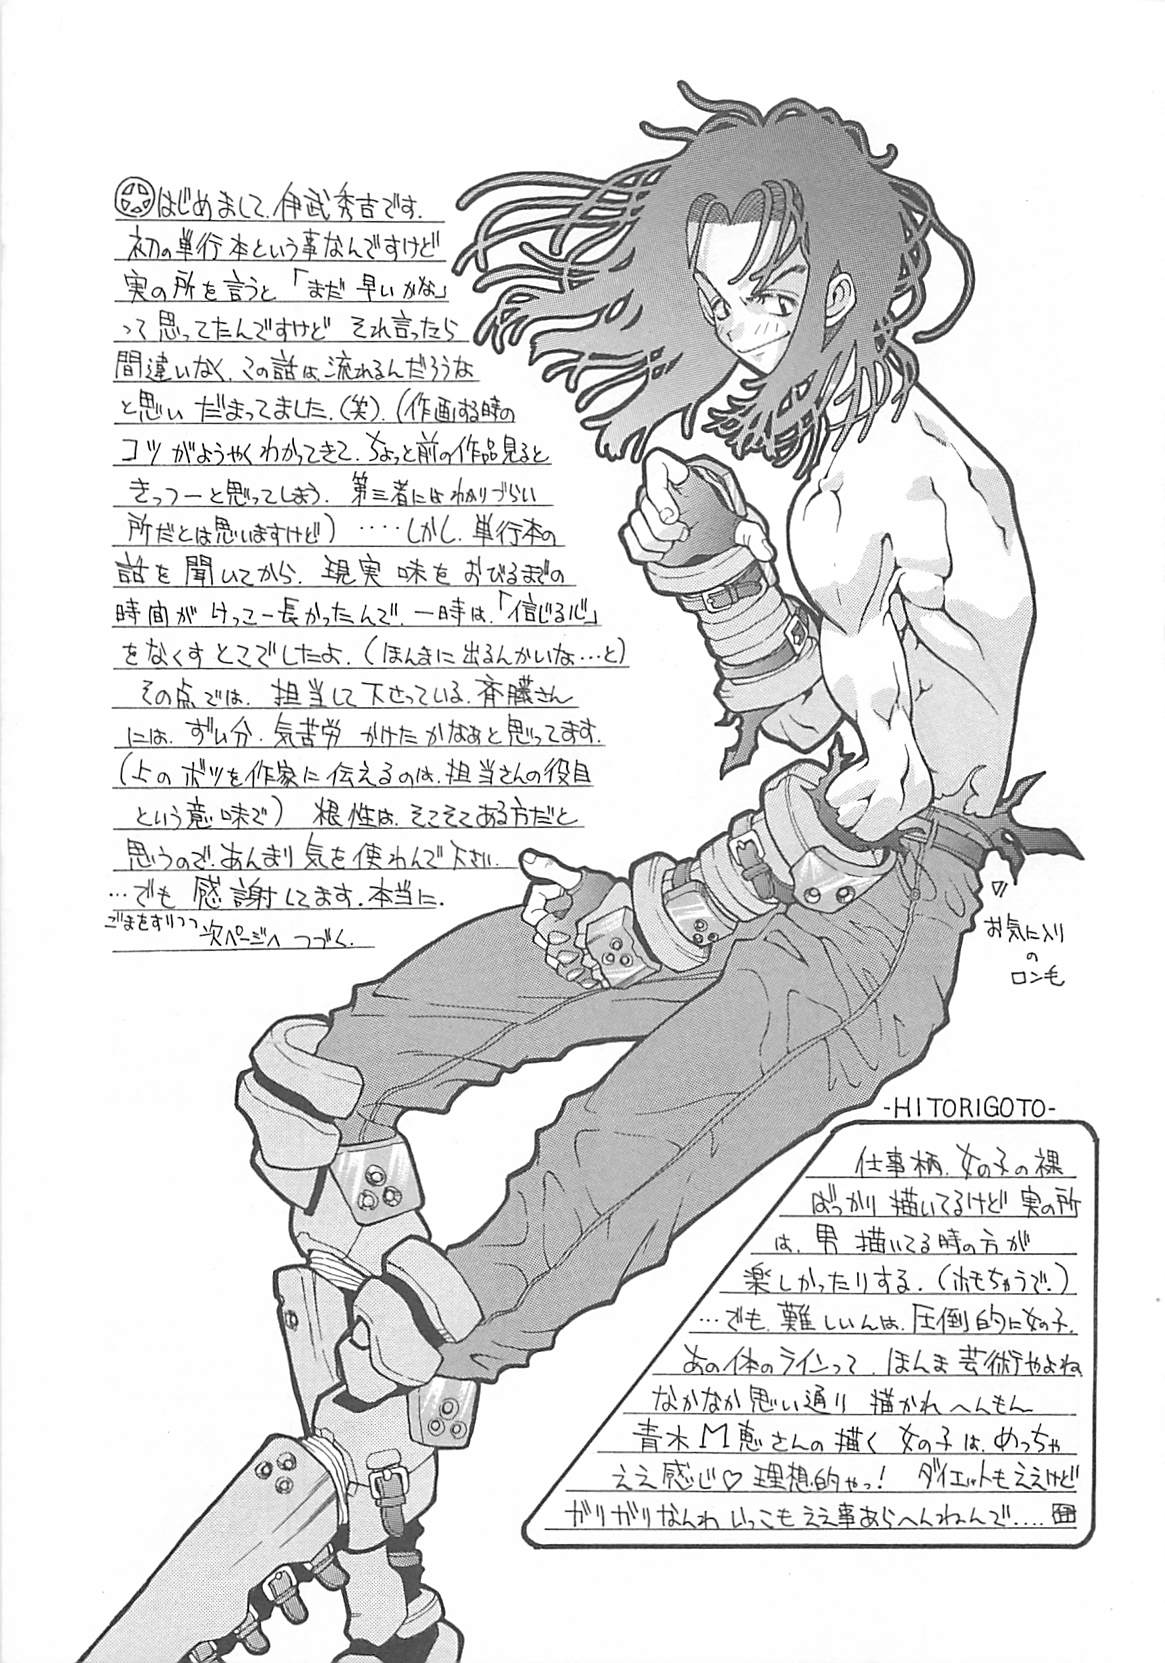 はじめまして、伊武秀吉です。
初の単行本という事なんですけど
実の所を言うと「まだ早いがな」
って思ってたんですけど それ言ったら
間違いなく、この話は、流れるんだろうな
と思い だまってました。(笑)。(作画する時の
コツがようやくわかってきて、ちょっと前の作品見ると
きっつーと思ってしまう。第三者にはわかりづらい
所だとは思いますけど)‥‥‥しかし、単行本の
話を聞いてから、現実味をおびるまでの
時間が けっこー長かったんで、一時は、「信じる心」
をなくすとこでしたよ。(ほんまに出るんかいな…と)
その点では、担当して下さっている、斉藤さん
には、ずい分、気苦労 かけたかなぁと思ってます。
(上のボツを作家に伝えるのは、担当さんの役目
という意味で) 根性は、そこそこある方だと
思うので、あんまり気を使わんで下さい。
…でも 感謝してます。本当に。
ごまをすりつつ 次ページへ つづく。
お気に入り
の
ロン毛
-HITORIGOTO-
仕事柄、女の子の裸
ばっかり描いてるけど 実の所
は、男 描いてる時の方が
楽しかったりする。(ホモちゃうで。)
…でも、難しいんは、圧倒的に女の子。
あの体のラインって、ほんま芸術やよね
なかなか思い通り 描かれへんもん
青木M恵さんの描く 女の子は、めっちゃ
ええ感じ♡理想的やっ! ダイエットもええけど
ガリガリなんわ いっこもええ事あらへんねんで‥‥